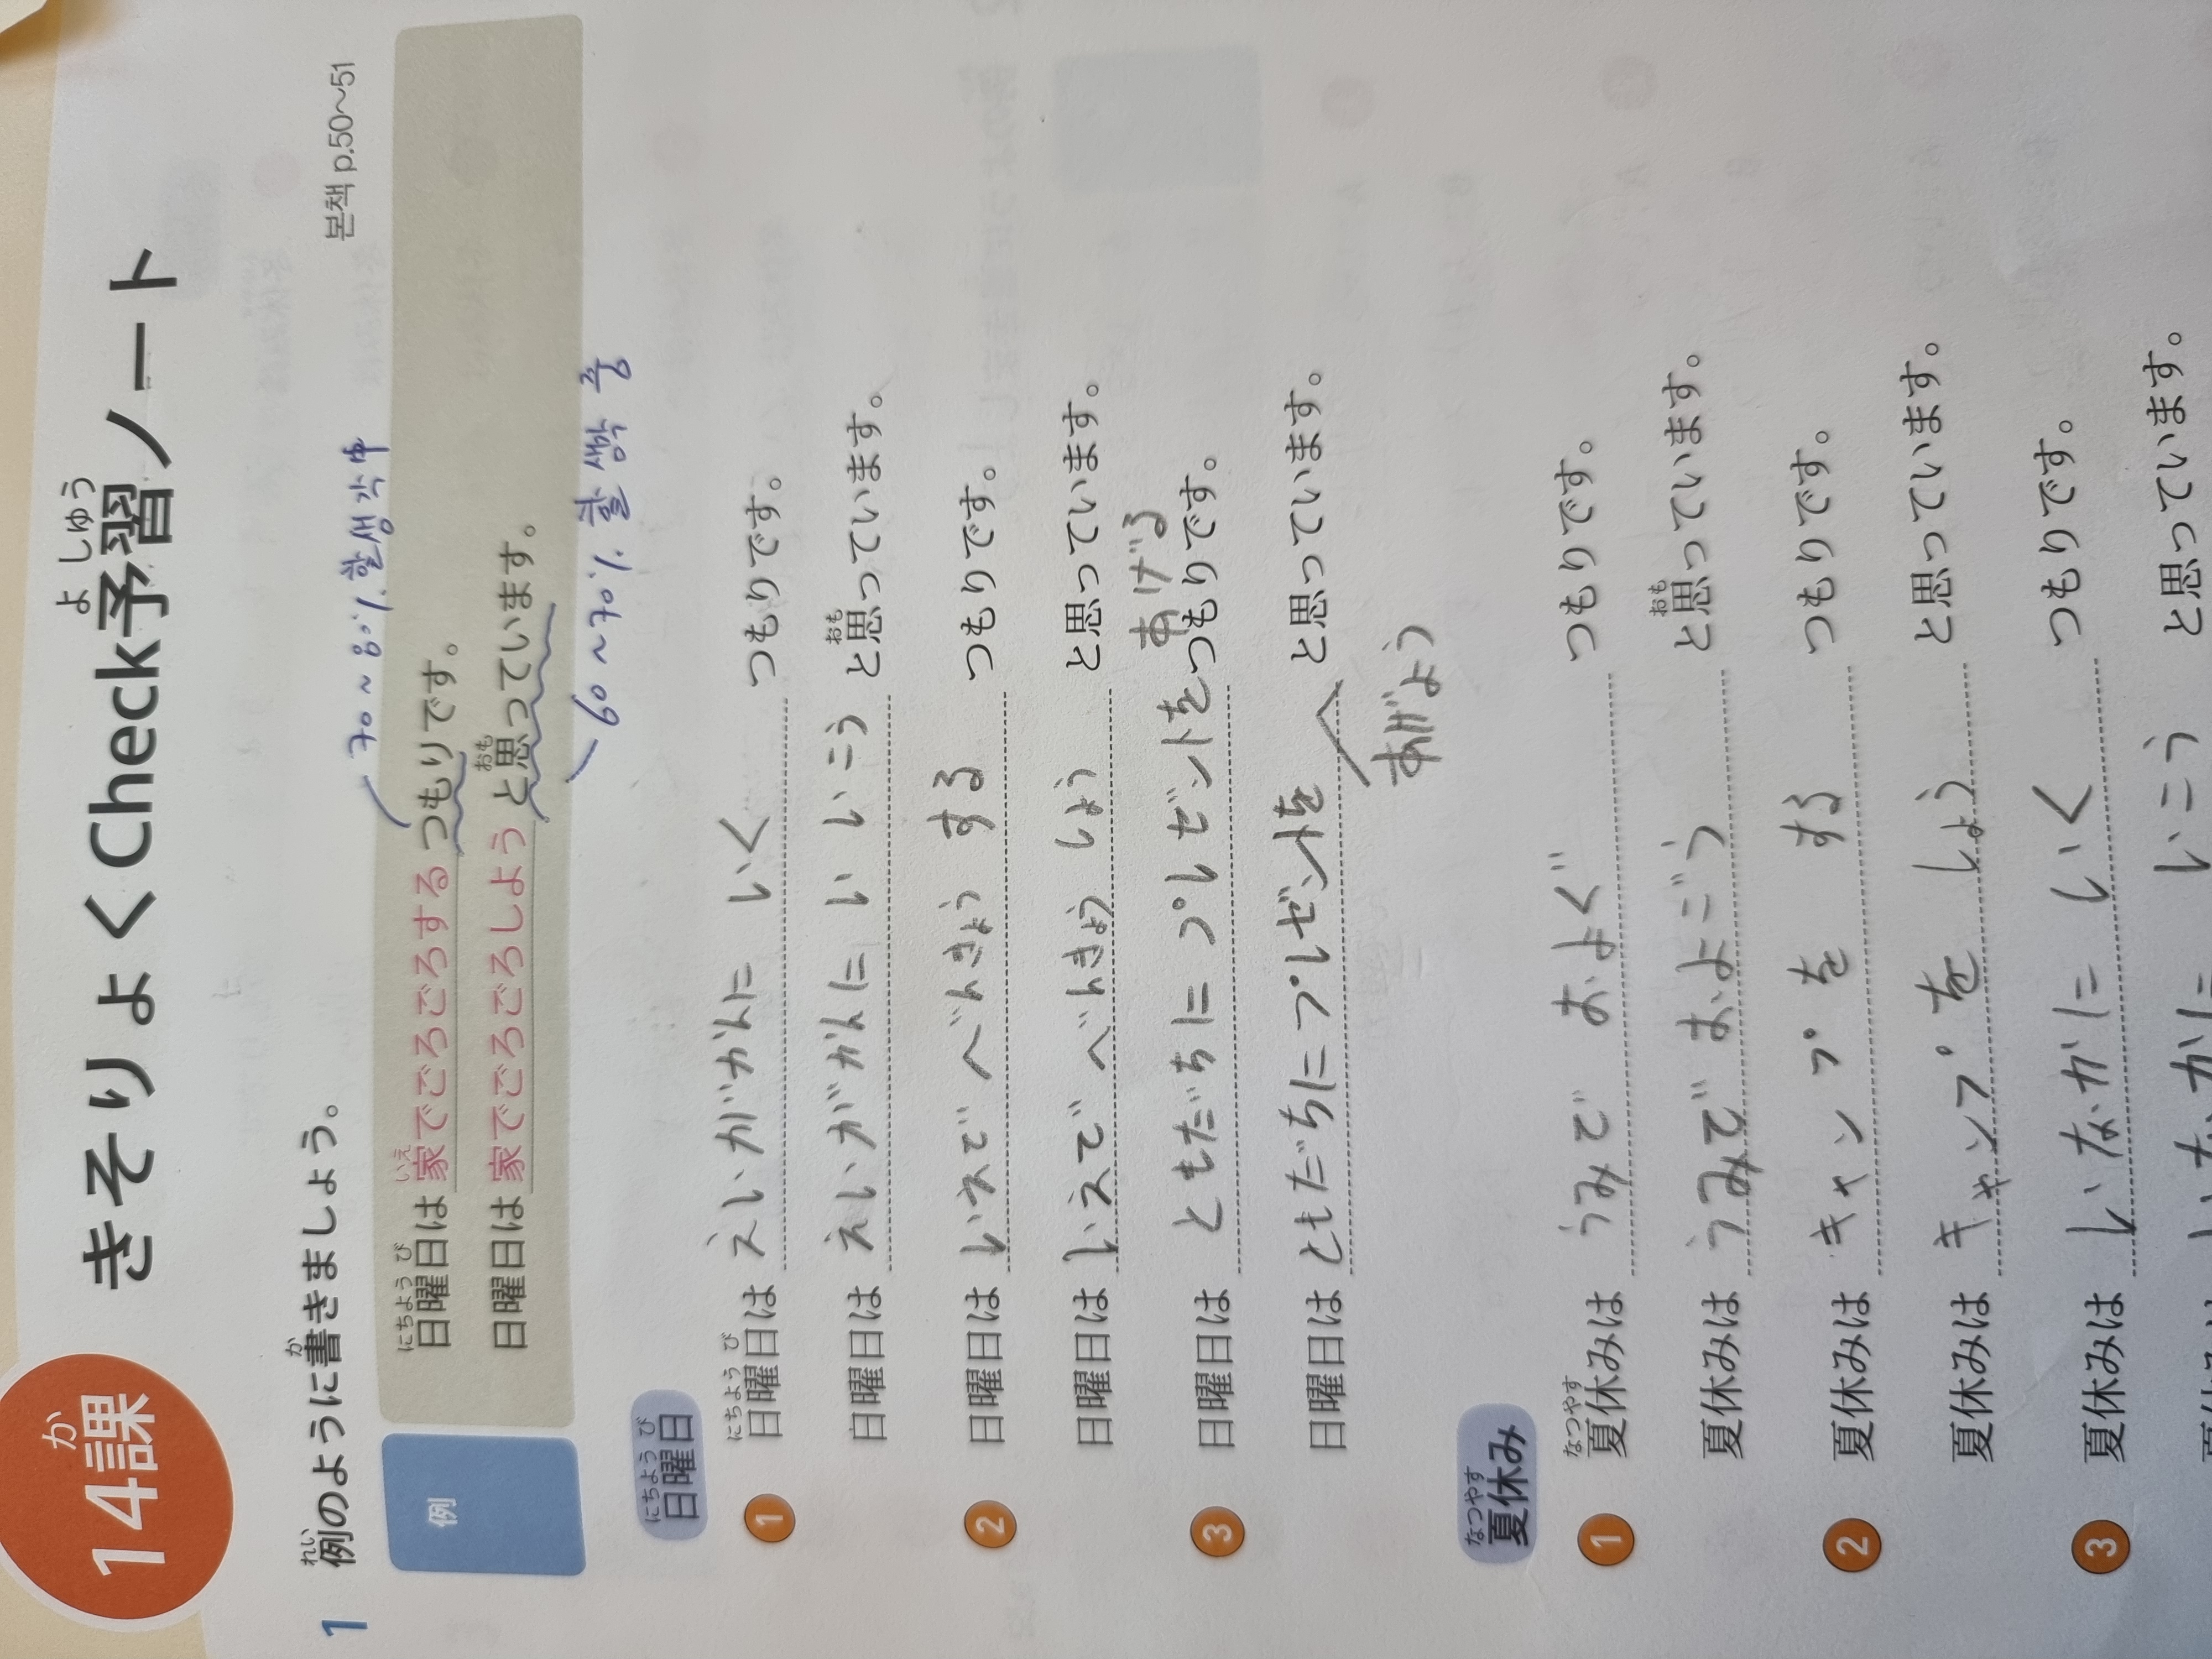 14課
か
きそりょくCheck予習ノート
よしゅう
1 例のように書きましょう。
れい か
본책 p.50~51
70~80% 할 생각 中
例
日曜日は家でごろごろするつもりです。
にちようび いえ
日曜日は家でごろごろしようと思っています。
おも
60~70% 할 생각 중
日曜日
にちようび
1 日曜日は えいがかんに いく つもりです。
にちようび
日曜日は えいがかんに い いこう と思っています。
おも
2 日曜日は いえで べんきょう する つもりです。
日曜日は いえで べんきょう しよう と思っています。
あげる
3 日曜日は ともだちに プレゼントを つもりです。
日曜日は ともだちに プレゼントを と思っています。
あげよう
夏休み
なつやす
1 夏休みは うみで およぐ つもりです。
なつやす
夏休みは うみで およごう と思っています。
おも
2 夏休みは キャンプを する つもりです。
夏休みは キャンプを しよう と思っています。
3 夏休みは いなかに いく つもりです。
夏休みは いなかに いこう と思っています。